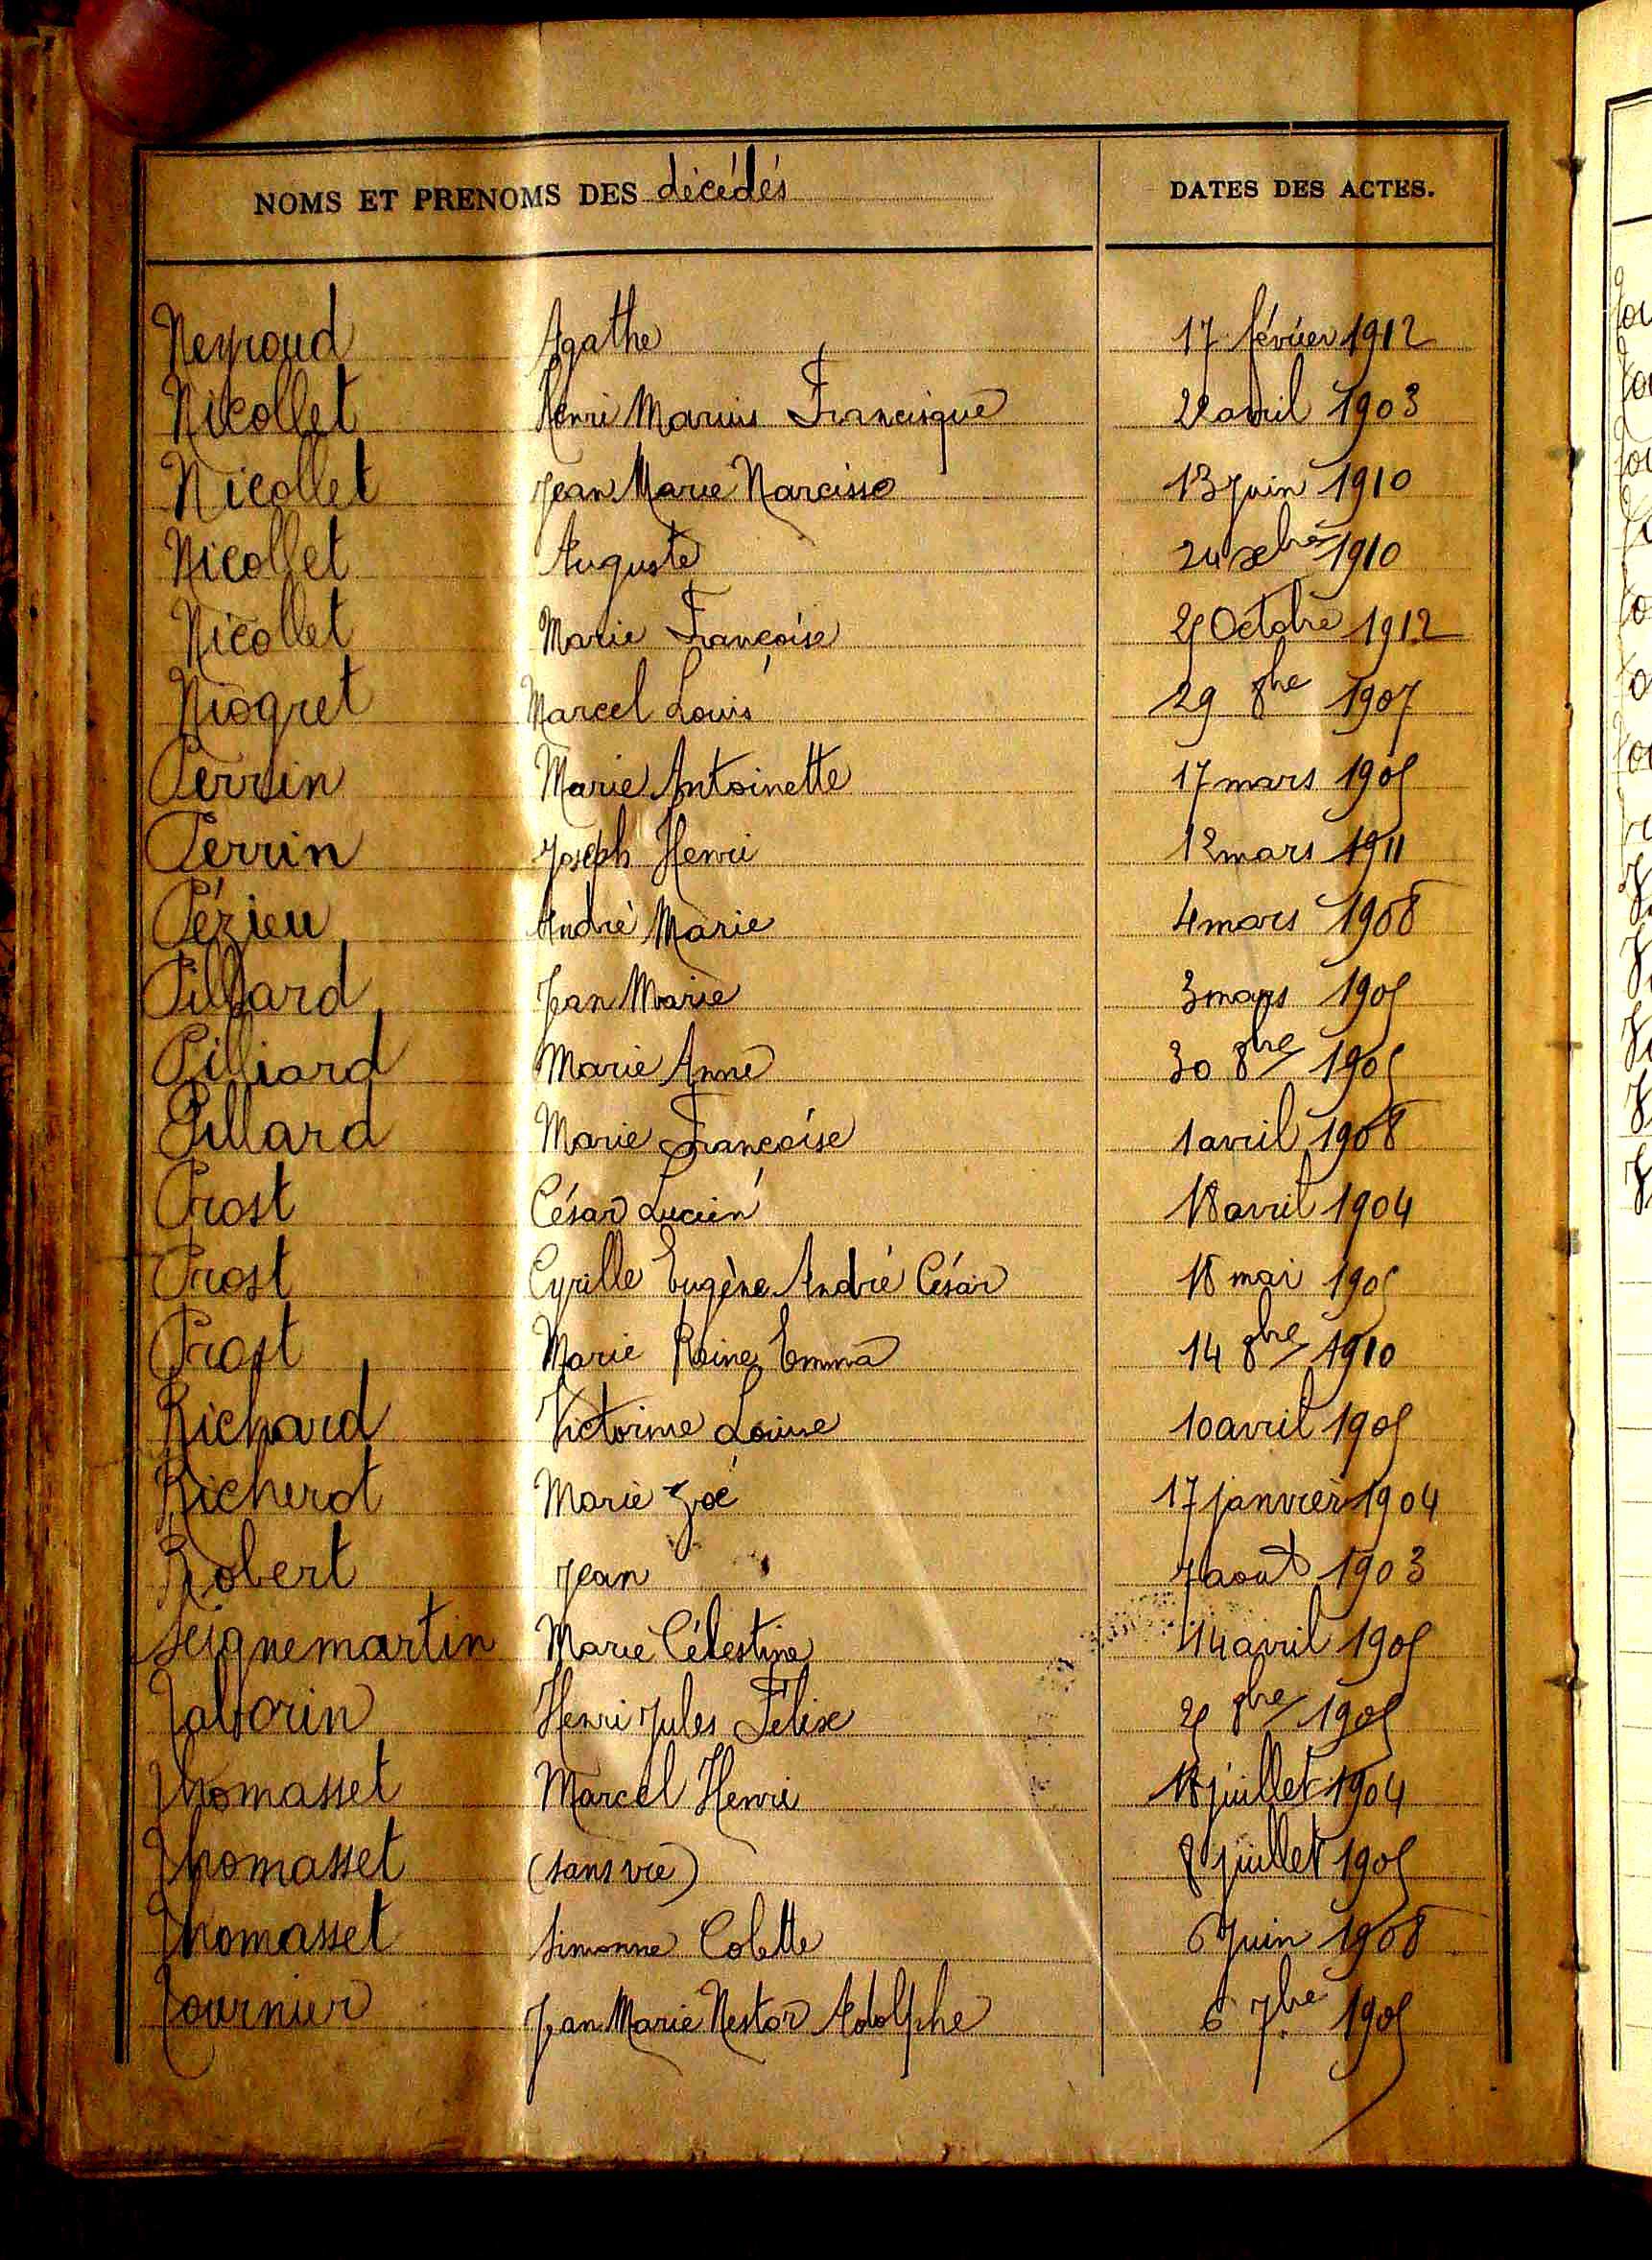 NOMS ET PRENOMS DES décédés DATES DES ACTES.
Neyroud Agathe 17 février 1912
Nicollet Henri Marius Francisque avril 1903
Nicollet Jean Marie Narcisse 13 Juin 1910
Nicollet Auguste 24 xbre 1910
Nicollet Marie Françoise 25 Octobre 1912
Niogret Marcel Louis 29 8bre 1907
Perrin Marie Antoinette 17 mars 1905
Perrin Joseph Henri 12 mars 1911
Pézieu André Marie 4 mars 1908
Pillard Jean Marie 3 mars 1905
Pilliard Marie Anne 30 8bre 1905
Pillard Marie Françoise 1 avril 1908
Prost César Lucien 18 avril 1904
Prost Cyrille Eugène André César 18 mai 1905
Prost Marie Reine Emma 14 8bre 1910
Richard Victorine Louise 10 avril 1905
Richerot Marie Zoé 17 janvier 1904
Robert Jean 7 aout 1903
Seignemartin Marie Célestine 14 avril 1905
Henri Jules Félix 25 1905
Thomasset Marcel Henri 18 juillet 1904
Thomasset (sans vie) 8 juillet 1905
Thomasset Simonne Colette 6 Juin 1908
Tournier Jean Marie Nestor Adolphe 6 7bre 1905